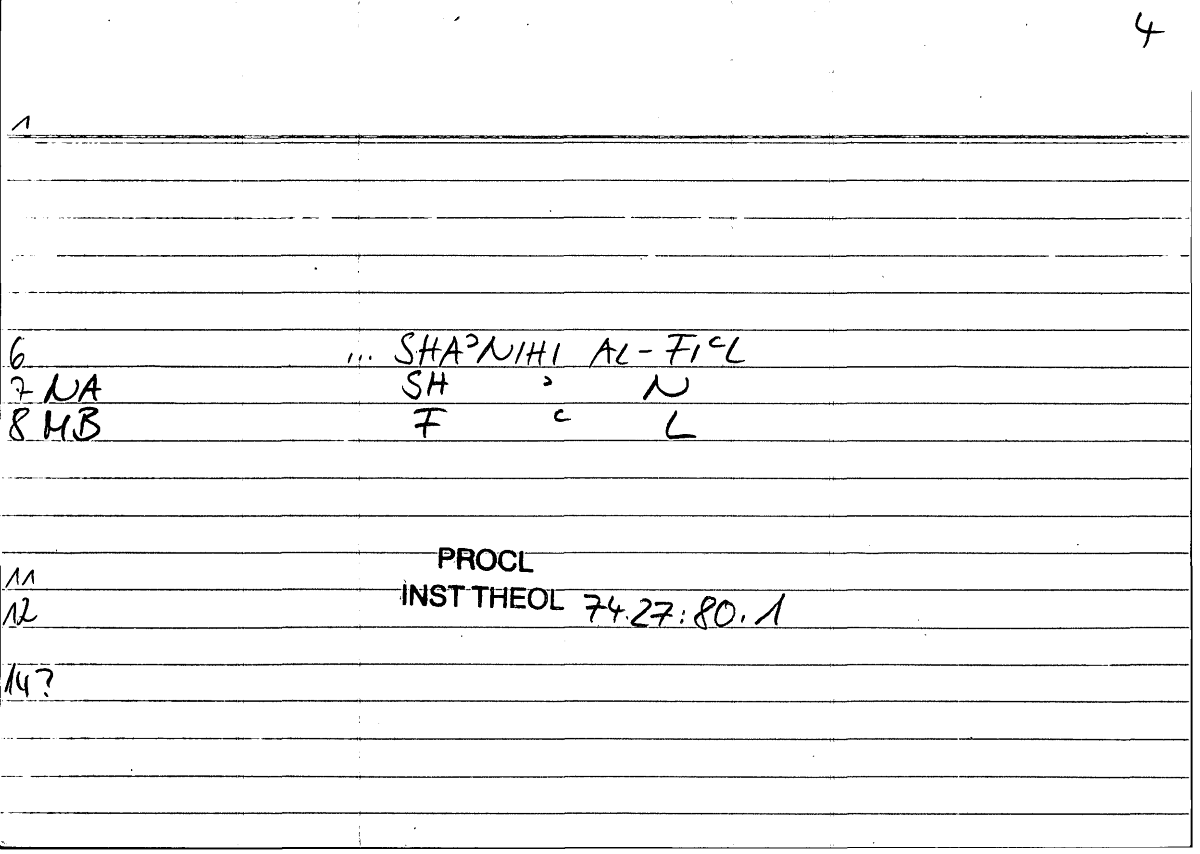 4
1
6 ... SHAʾNIHI AL-FIʿL
7 NA SH ʾ N
8 MB F ʿ L
PROCL
11
INST THEOL 74.27:80.1
12
14?